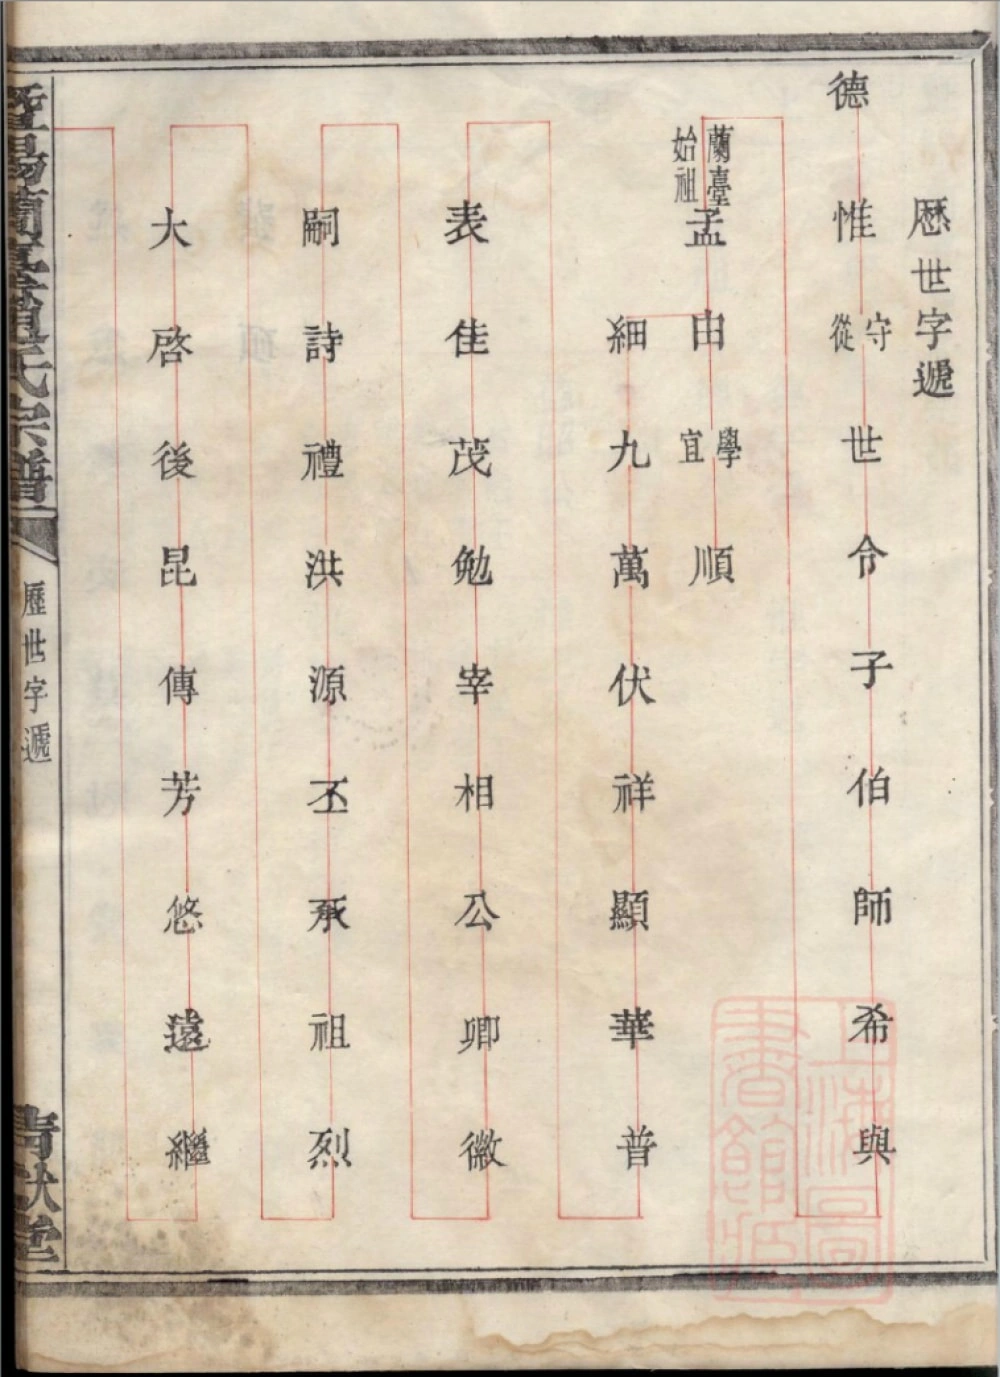 歷世字遞
德惟守從世令子伯師希與
蘭臺始祖
孟由學宜順
細九萬伏祥顯華普
表佳茂勉宰相公卿徽
嗣詩禮洪源丕承祖烈
大啓後昆傳芳悠遠繼
暨陽蘭臺趙氏宗譜
歷世字遞
青猷堂
上海圖書館藏